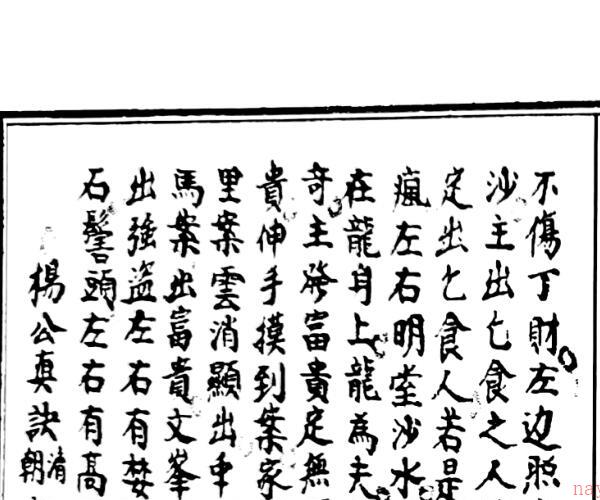 不傷丁財左边照
沙主出乞食之人
定出乞食人若是
瘋左右明堂沙水
在龍身上龍為夫
奇主發富貴定無
貴伸手摸到案家
里案雲消顯出
馬案出富貴文峯
出強盜左右有
石髻頭左右有高
楊公真訣清朝